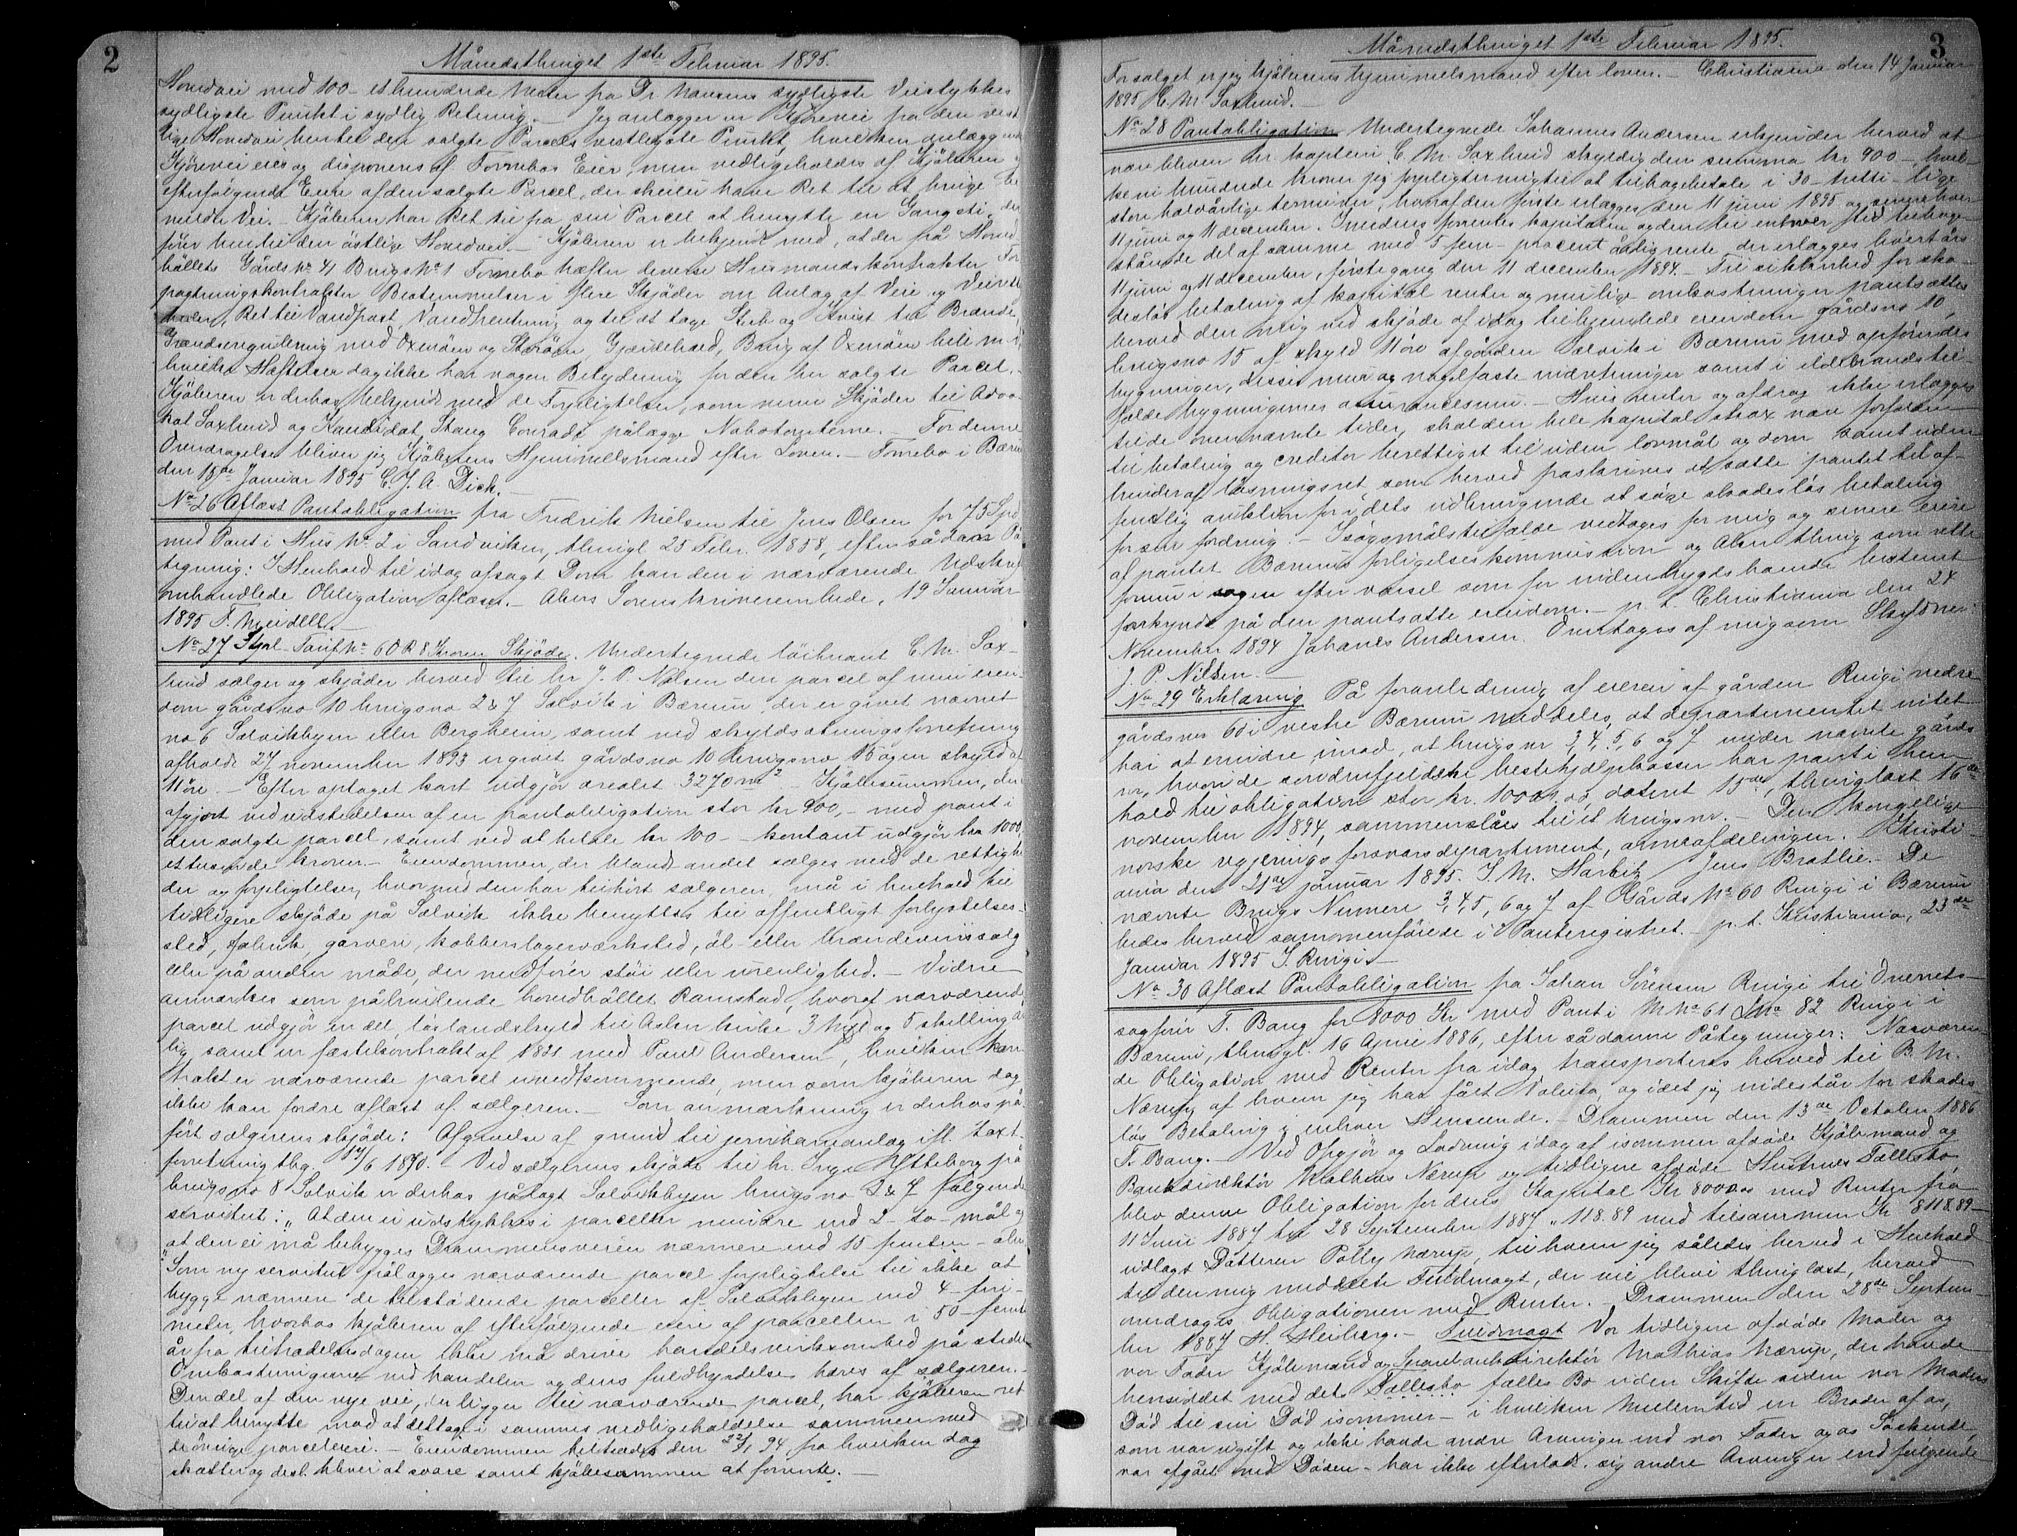 2
Månedsthinget 1ste Februar 1895.
Hovedvei med 100 - et hundrede Meter fra Dr Hansens sydligste Veistykkes
sydligste Punkt i sydlig Retning. - Jeg anlægger en Kjørevei fra den vest
lige Hovedvei hen til den solgte Parcels vestligste Punkt, hvilken anlagg
Kjørevei eies og disponeres af Fornebos Eier, men vedligeholdes af Kjøberen
efterfølgende Eiere af den solgte Parcel, der skulle have Ret til at bruge
nævnte Vei. - Kjøberen har Ret til fra sin Parcel at benytte en Gangsti, der
fører hen til den østlige Hovedvei. - Kjøberen er bekjendt med, at der på Hoved
bøllets Gårds No 41 Brugs No 1 Fornebo hæfter diverse Husmandskontrakter For
pagtningskontrakter Bestemmelser i flere Skjøder om Anlæg af Veie og Veirett
Ret til Vandpost, Vandhentning og til at tage Stub og Kvist til Brænde,
Grændseregulering med Oxenøen og Storøen, Gjærdehold, Brug af Oxenøen
hvilke Hæftelser dog ikke har nogen Betydning for den her solgte Parcel.
Kjøberen er derhos bekjendt med de Forpligtelser, som mine Skjøder til Advo-
kat Saxlund og Kandidat Stang Conradi pålægge Nabotomterne. - For denne
Overdragelse bliver jeg Kjøberens Hjemmelsmand efter Loven. - Fornebo i Bærum
den 15de Januar 1895 C. J. A. Dick.
No 26 Aflæst Pantobligation fra Fredrik Nielsen til Jens Olsen for 75 Spd
med Pant i Hus No 2 i Sandviken, thingl. 25 Febr. 1858, efter sådan På
tegning: I Henhold til idag afsagt Dom kan den i nærværende Udskrift
omhandlede Obligation aflæses. - Akers Sorenskriverembede, 19 Januar
1895 F. Meidell. -
No 27 Stpl. Tarif No 6 Okl 8 Kroner Skjøde. Undertegnede løitnant C. M. Sax-
lund sælger og skjøder herved til hr J. P. Nilsen den parcel af min eien-
dom gårdsno 10 brugsno 2 & 7 Solvik i Bærum, der er givet navnet
no 6 Solvikbyen eller Bergheim, samt ved skyldsætningsforretning
afholdt 27 november 1893 er givet gårdsno 10 brugsno 15 og en skyld af
11 øre. - Efter optaget kart udgjør arealet 3270 m2 - Kjøbesummen, der
afgjort ved udstedelsen af en pantobligation stor kr 900,- med pant i
den solgte parcel, samt ved at betale kr 100 - kontant udgjør kr 1000,
ettusende kroner. - Eiendommen, der blandt andet sælges med de rettighe
der og forpligtelser, hvormed den har tilhørt sælgeren, må i henhold til
tidligere skjøde på Solvik ikke benyttes til offentligt forlystelses-
sted, fabrik, garveri, kobberslagerværksted, øl- eller brændevinssalg
eller på anden måde, der medfører støi eller urenlighed. - Videre
anmærkes som påhvilende hovedbøllet Ramstad, hvoraf nærværende
parcel udgjør en del, løs landskyld til Asker kirke 3 og 5 skilling år
lig samt en fæstekontrakt af 1821 med Paul Andersen, hvilken kon
trakt er nærværende parcel uvedkommende, men som kjøberen dog
ikke kan fordre aflæst af sælgeren. - Som anmærkning er derhos på-
ført sælgerens skjøde: Afgivelse af grund til jernbaneanlæg ifl. taxt-
forretning thg. 17/6 1870. - Ved sælgerens skjøde til hr. Inge Hytteborg på
brugsno 8 Solvik er derhos pålagt Solvikbyen brugsno 2 & 7 følgende
servitut: "At den ei udstykkes i parceller mindre end 2 - to - mål og
at den ei må bebygges Drammensveien nærmere end 15 femten - alen
"Som ny servitut pålægges nærværende parcel forpligtelse til ikke at
bygge nærmere de tilstødende parceller af Solvikbyen end 4 - fire -
meter, hvorhos kjøberen af efterfølgende eiere af parcellen i 50 - femti
år fra tiltrædelsesdagen ikke må drive handelsvirksomhed på stedet
Omkostningerne ved handelen og dens fuldbyrdelse bæres af sælgeren. -
Den del af den nye vei, der ligger til nærværende parcel, har kjøberen ret
til at benytte mod at deltage i sammes vedligeholdelse sammen med
de øvrige parceleiere. - Eiendommen tiltrædes den 22/1 94 fra hvilken dag
skatter og desl. bliver at svare samt kjøbesummen at forrente. -
3
Månedsthinget 1ste Februar 1895.
Forsalget er jeg kjøberens hjemmelsmand efter loven. - Christiania den 14 Januar
1895 C. M. Saxlund. -
No 28 Pantobligation Undertegnede Johannes Andersen erkjender herved at
være bleven hr. kaptein C. M. Saxlund skyldig den summa kr 900 - hvil-
ke ni hundrede kroner jeg forpligter mig til at tilbagebetale i 30 - tretti - lige
store halvårlige terminer, hvoraf den første erlægges den 11 juni 1895 og senere hver
11 juni og 11 december. Imidlens forrentes kapitalen og den til enhver tid tilbage-
stående del af samme med 5 fem - procent årlig rente, der erlægges hvert års
11 juni og 11 december, første gang den 11 december 1894. - Til sikkerhed for ska-
desløs betaling af kapital renter og mulige omkostninger pantsættes
herved den mig ved skjøde af idag tilhjemlede eiendom gårdsno 10,
brugsno 15 af skyld 11 øre af gården Solvik i Bærum med opførendes
bygninger, disses mur og nagelfaste indretninger samt i ildebrandstil-
fælde bygningernes assurancesum. - Hvis renter og afdrag ikke erlægges
til de ovennævnte tider, skal den hele kapital strax være forfalden
til betaling og creditor berettiget til uden lovmål og dom samt uden
hinder af løsningsret som herved fraskrives at sætte pantet til of-
fentlig auktion for i dets udbringende at søge skadesløs betaling
for sin fordring. - I søgsmålstilfælde vedtages for mig og senere eiere
af pantet Bærums forligelseskommission og Aker thing som rette
forum i sagen efter varsel som for indenbygds boende bestemt
forkyndt på den pantsatte eiendom. - p. t. Christiania den 24
November 1894 Johanes Andersen. Overtages af mig som Skyldner
J. P. Nilsen. -
No 29 Erklæring På foranledning af eieren af gården Ringi nedre
gårdsno 60 i vestre Bærum meddeles, at departementet intet
har at erindre imod, at brugsnr 3, 4, 5, 6 og 7 under nævnte gårds
nr, hvori de søndenfjeldske hestehjælpkasser har pant i hen
hold til obligation stor kr. 1000,00, dateret 15de, thinglæst 16de
november 1894, sammenslåes til et brugsnr. - Den kongelige
norske regjerings forsvarsdepartement, armeafdelingen. Kristi-
ania den 21de januar 1895. J. M. Harbitz Jens Bratlie. - De
nævnte Brugs Numere 3, 4, 5, 6 og 7 af Gårds No 60 Ringi i Bærum
bedes herved sammenførede i Panteregistret. - p. t. Kristiania, 23de
Januar 1895 J. Ringi. -
No 30 Aflæst Pantobligation fra Johan Sørensen Ringi til Overrets-
sagfører T. Bang for 8000 Kr med Pant i M No 61 LNo 82 Ringi i
Bærum, thingl. 16 April 1886, efter sådanne Påtegninger: Nærværen
de Obligation med Renter fra idag transporteres herved til B. M.
Nærup af hvem jeg har fået Valuta, og idet jeg indestår for skades-
løs Betaling i enhver Henseende. - Drammen den 13de October 1886
T. Bang. - Ved Opgjør og Lodning idag af isommer afdøde Kjøbmand og
Bankdirektør Mathias Nærup og tidligere afdøde Hustrues Fællesbo
blev denne Obligation for dens Kapital Kr 8000.00 med Renter fra
11 Juni 1887 til 28 September 1887 " 118.89 med tilsammen Kr 8118.89 -
udlagt Datteren Polly Nærup, til hvem jeg således herved i Henhold
til den mig meddelte Fuldmagt, der vil blive thinglæst, herved
overdrages Obligationen med Renter. - Drammen den 28de Septem-
ber 1887 H. Heiberg. - Fuldmagt Vor tidligere afdøde Moder og
vor Fader Kjøbmand og Sparebankdirektør Mathias Nærup, der havde
hensiddet med det Fællesbo fælles Bo uden Skifte siden vor Moders
Død til sin Død isommer - i hvilken Mellemtid en Broder af os,
som var ugift og ikke havde andre Arvinger end vor Fader og os Søskende,
var afgået ved Døden - har ikke efterladt sig andre Arvinger end følgende